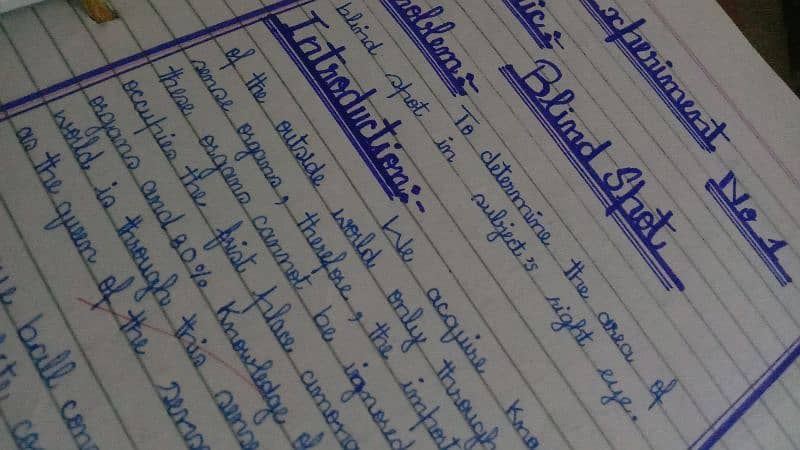 Experiment No 1
Blind Spot
Problem:- To determine the area of
blind spot in subject's right eye.
Introduction:- We acquire
of the outside world only through
sense organs, therefore, the
these organs cannot be ignored
occupies the first place among
organs and 80% knowledge of
world is through this sense
as the queen of the sense
ball